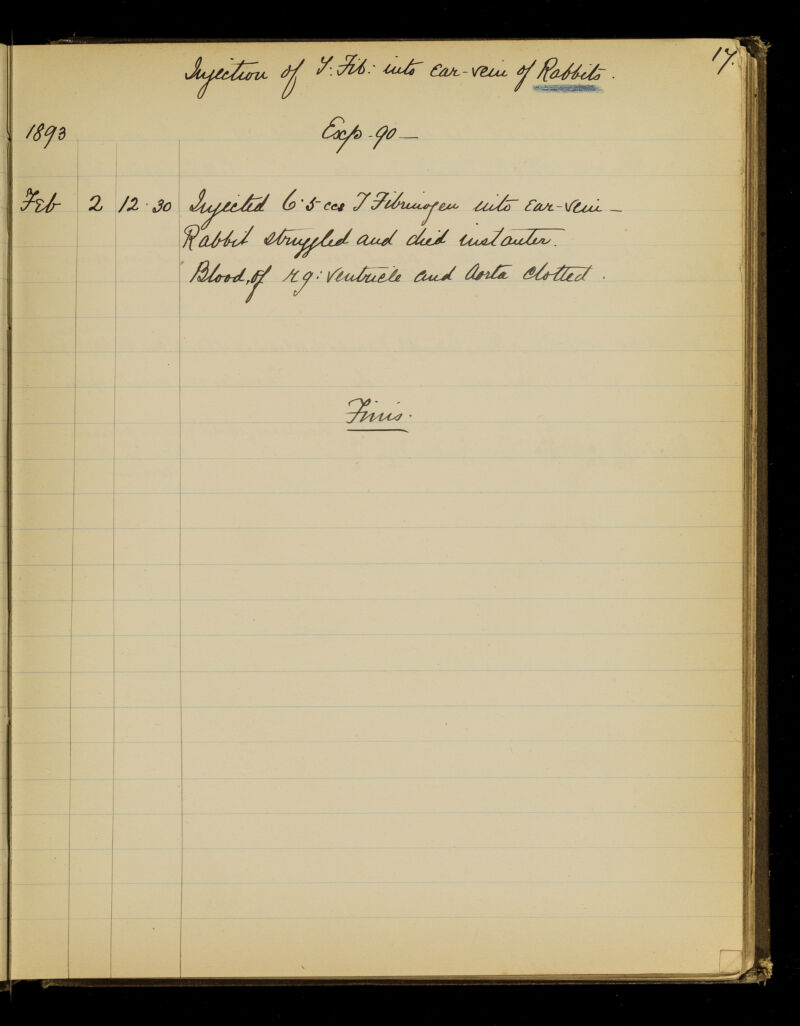 17.
Injection of T: Fib: into ear-vein of Rabbits.
1893 Exp. 90—
Feb 2 12·30 Injected 6·5 ccs T Fibrinogen into ear-vein—
Rabbit struggled and died instanter.
Blood, of rg: ventricle and Aorta clotted.
Finis.